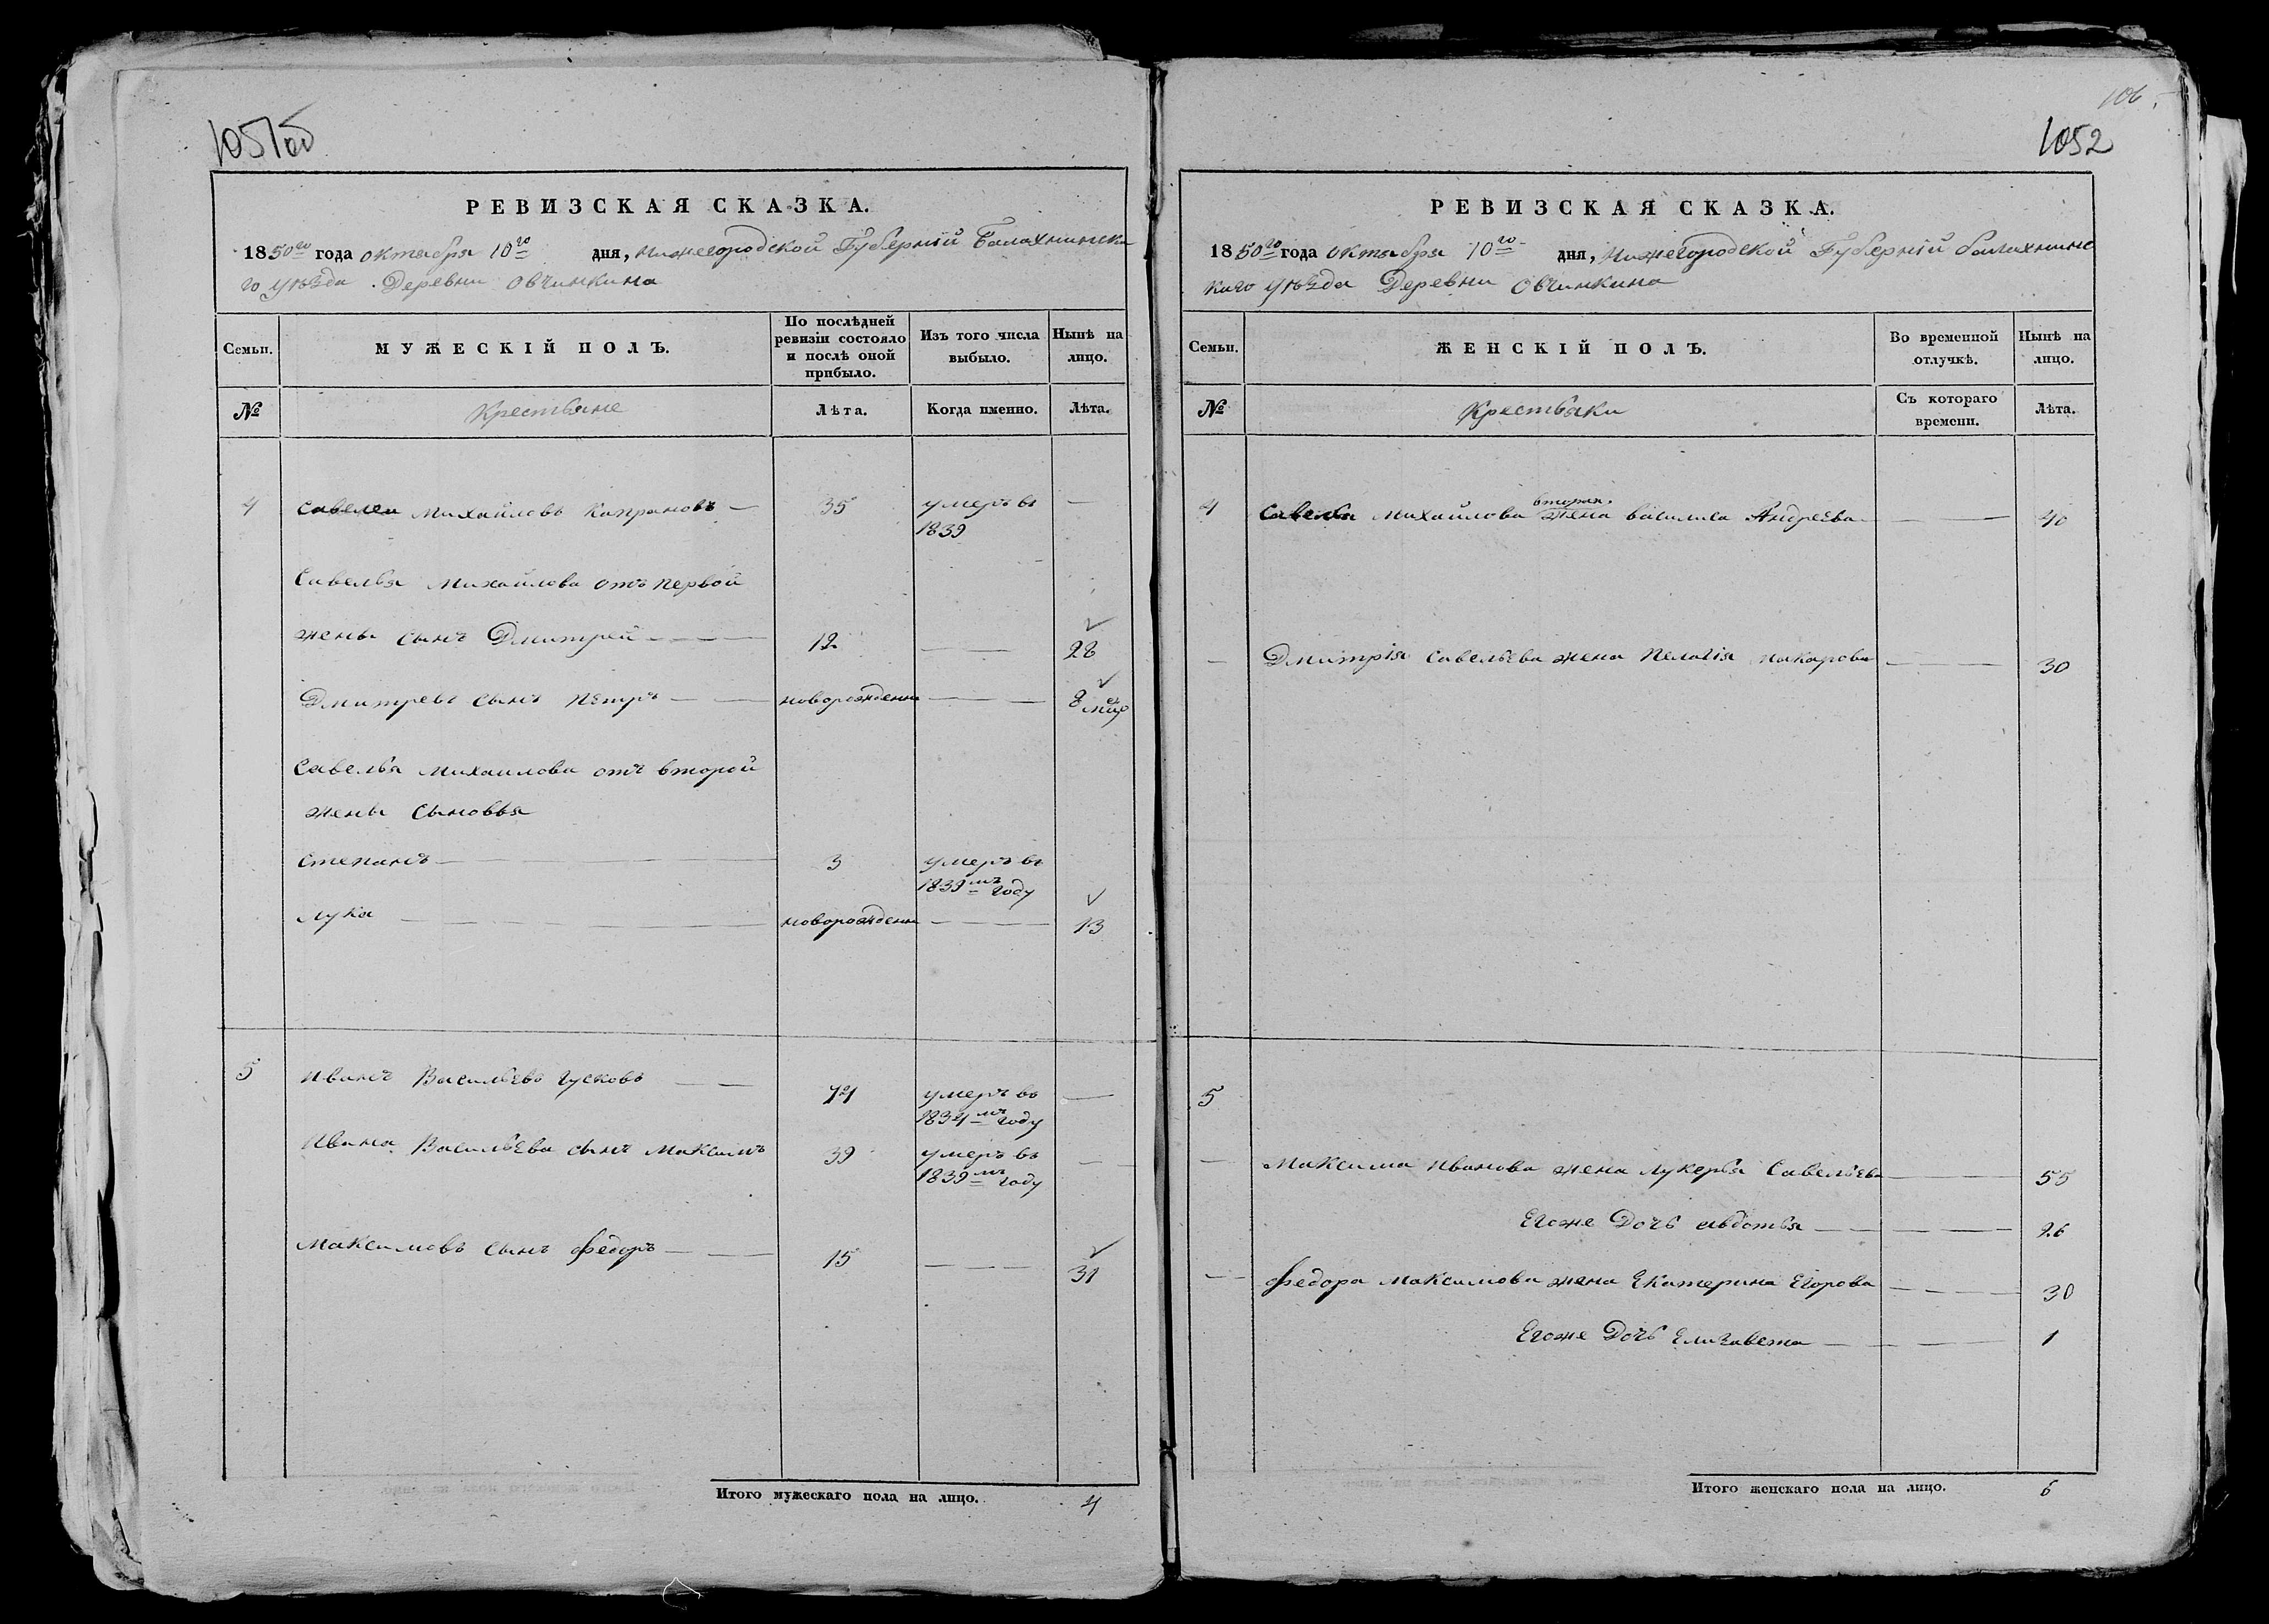 1051об
РЕВИЗСКАЯ СКАЗКА.
1850го года октября 10го дня, Нижегородской Губерний Балахнинска
го уѣзда Деревни Овчинкина
Семьи.
МУЖЕСКІЙ ПОЛЪ.
По послѣдней ревизіи состояло и послѣ оной прибыло.
Изъ того числа выбыло.
Нынѣ на лицо.
№
Крестьяне
Лѣта.
Когда именно.
Лѣта.
4 Савелеи Михайловъ Капрановъ — 35 умеръ въ —
1839
Савелья Михайлова отъ первой
жены сынъ Дмитрей — 12 — 28
Дмитревъ сынъ Петръ — новорожденн — 8 мѣс
Савелья Михаилова отъ второй
жены сыновья
Степанъ — 3 умеръ въ
1839мъ году
Лука — новорожденн — 13
5 Иванъ Васильевъ Гусковъ — 74 умеръ въ —
1834мъ году
Ивана Васильева сынъ Максимъ 39 умеръ въ —
1839мъ году
Максимовъ сынъ Федоръ — 15 — 31
Итого мужескаго пола на лицо. 4
106.
1052
РЕВИЗСКАЯ СКАЗКА.
1850го года октября 10го дня, Нижегородской Губерній балахнинс
каго уѣзда Деревни Овчинкина
Семьи.
ЖЕНСКІЙ ПОЛЪ.
Во временной отлучкѣ.
Нынѣ на лицо.
№
Крестьяки
Съ котораго времени.
Лѣта.
вторая
4 Савелья Михайлова жена василиса Андреева — 40
— Дмитрія Савельева жена Пелагія Макарова — 30
5
— Максима Иванова жена Лукерья Савельева — 55
Егоже Дочь авдотья — 26
— Федора Максимова жена Екатерина Егорова — 30
Егоже Дочь Елизавета — 1
Итого женскаго пола на лицо. 6